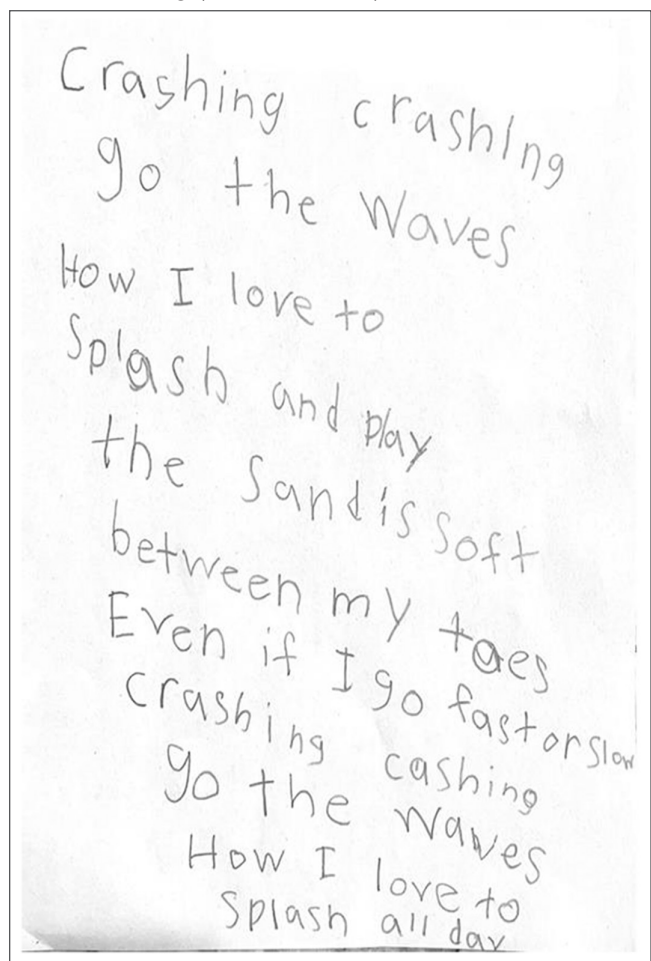 Crashing crashing
go the Waves
How I love to
Splash and play
the Sand is Soft
between my toes
Even if I go fast or slow
crashing cashing
go the waves
How I love to
Splash all day